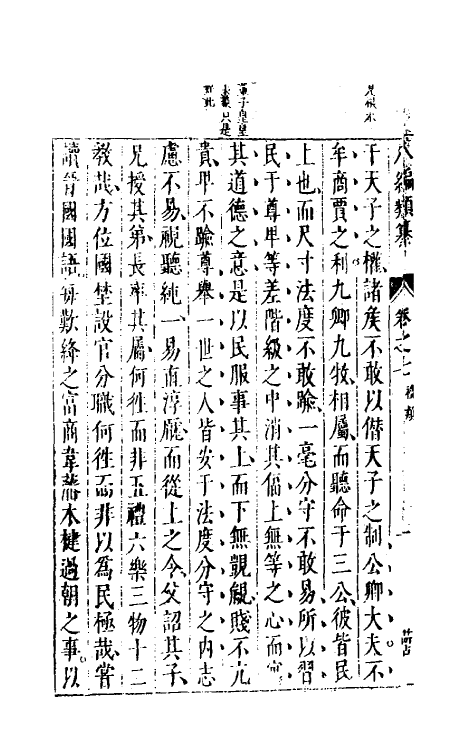 八編類纂
卷之七
干天子之權諸侯不敢以僣天子之制公卿大夫不
牟商賈之利九卿九牧相屬而聽命于三公彼皆民
上也而尺寸法度不敢踰一毫分守不敢易所以習
民于尊卑等差階級之中消其偪上無等之心而寓
其道德之意是以民服事其上而下無覬覦賤不亢
貴卑不踰尊舉一世之人皆安于法度分守之内志
慮不易視聽純一易直淳厖而從上之令父詔其子
兄授其弟長率其屬何徃而非五禮六樂三物十二
教哉方位國埜設官分職何徃而非以爲民極哉嘗
讀晉國國語每歎絳之富商韋藩木楗過朝之事以